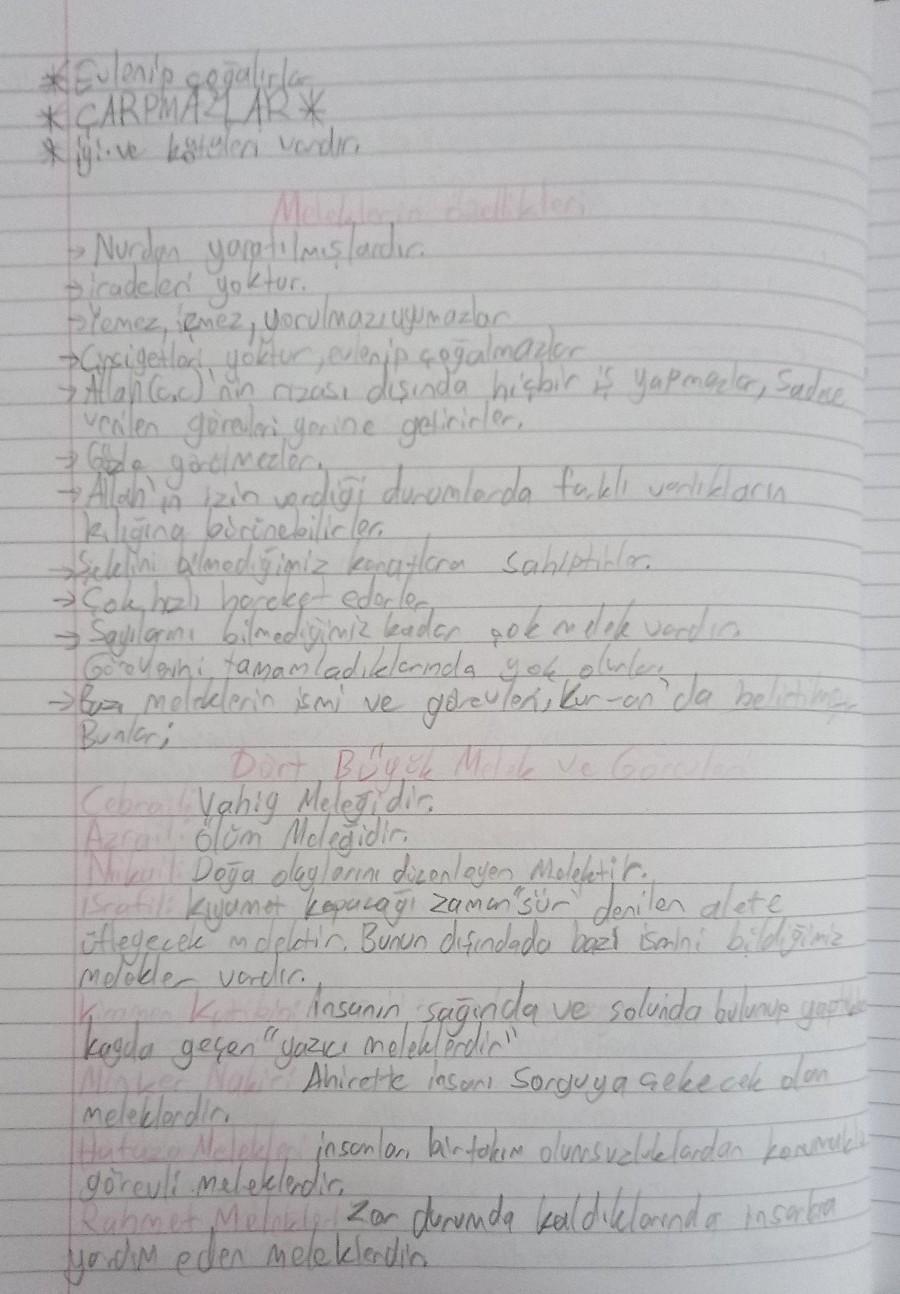 * Evlenip çoğalırlar
* ÇARPMAZLAR *
* iyi ve kötüleri vardır.
Meleklerin özellikleri
→ Nurdan yaratılmışlardır.
→ iradeleri yoktur.
→ Yemez, içmez, yorulmaz, uyumazlar
→ Cinsiyetleri yoktur, evlenip çoğalmazlar
→ Allah (c.c)'nin rızası dışında hiçbir iş yapmazlar, Sadece
verilen görevleri yerine getirirler.
→ Gözle görülmezler.
→ Allah'ın izin verdiği durumlarda farklı varlıkların
kılığına bürünebilirler.
→ Şeklini bilmediğimiz kanatlara sahiptirler.
→ Çok hızlı hareket ederler
→ Sayılarını bilmediğimiz kadar çok melek vardır.
Görevlerini tamamladıklarında yok olurlar.
→ Bazı meleklerin ismi ve görevleri, Kur-an'da
Bunlar;
Dört Büyük Melek ve Görevleri
Cebrail: Vahiy Meleğidir.
Azrail: Ölüm Meleğidir.
Mikail: Doğa olaylarını düzenleyen Melektir.
İsrafil: Kıyamet kopacağı zaman "sûr" denilen alete
üfleyecek melektir. Bunun dışındada bazı ismini bildiğimiz
melekler vardır.
Kiramen Katibin: İnsanın sağında ve solunda bulunup
kayda geçen "yazıcı meleklerdir"
Münker Nekir: Ahirette insanı Sorguya çekecek olan
meleklerdir.
Hafaza Melekleri insanları birtakım olumsuzluklardan korumakla
görevli meleklerdir.
Rahmet Melekleri Zor durumda kaldıklarında insanlara
yardım eden meleklerdir